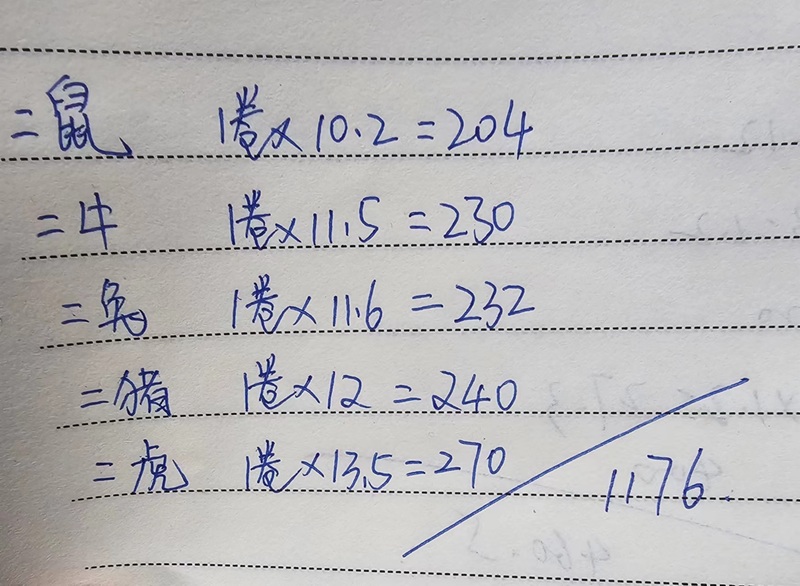 二鼠 1卷×10.2=204
二牛 1卷×11.5=230
二兔 1卷×11.6=232
二猪 1卷×12=240
二虎 1卷×13.5=270
1176.